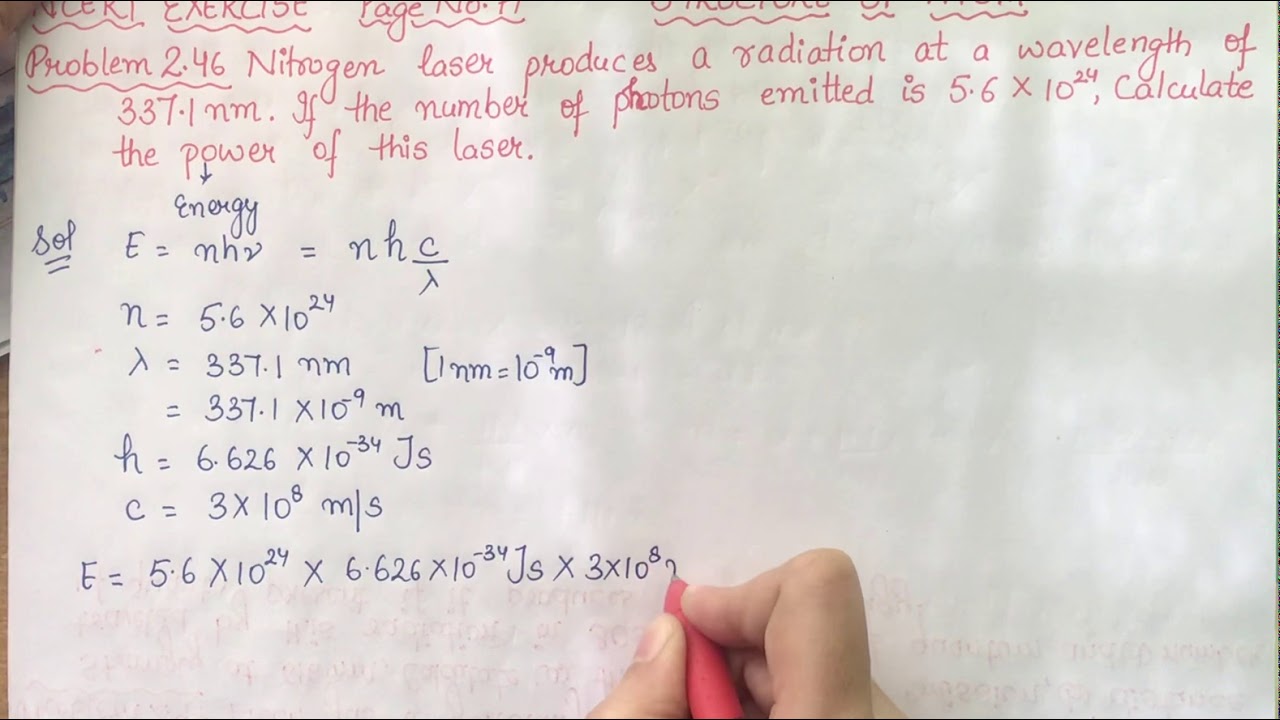 NCERT EXERCISE Page No. 71 STRUCTURE OF ATOM
Problem 2.46 Nitrogen laser produces a radiation at a wavelength of
337.1 nm. If the number of photons emitted is 5.6 × 10²⁴, Calculate
the power of this laser.
↓
Energy
Sol E = nhν = nh c/λ
n = 5.6 × 10²⁴
λ = 337.1 nm [1 nm = 10⁻⁹ m]
= 337.1 × 10⁻⁹ m
h = 6.626 × 10⁻³⁴ Js
c = 3 × 10⁸ m/s
E = 5.6 × 10²⁴ × 6.626 × 10⁻³⁴ Js × 3 × 10⁸